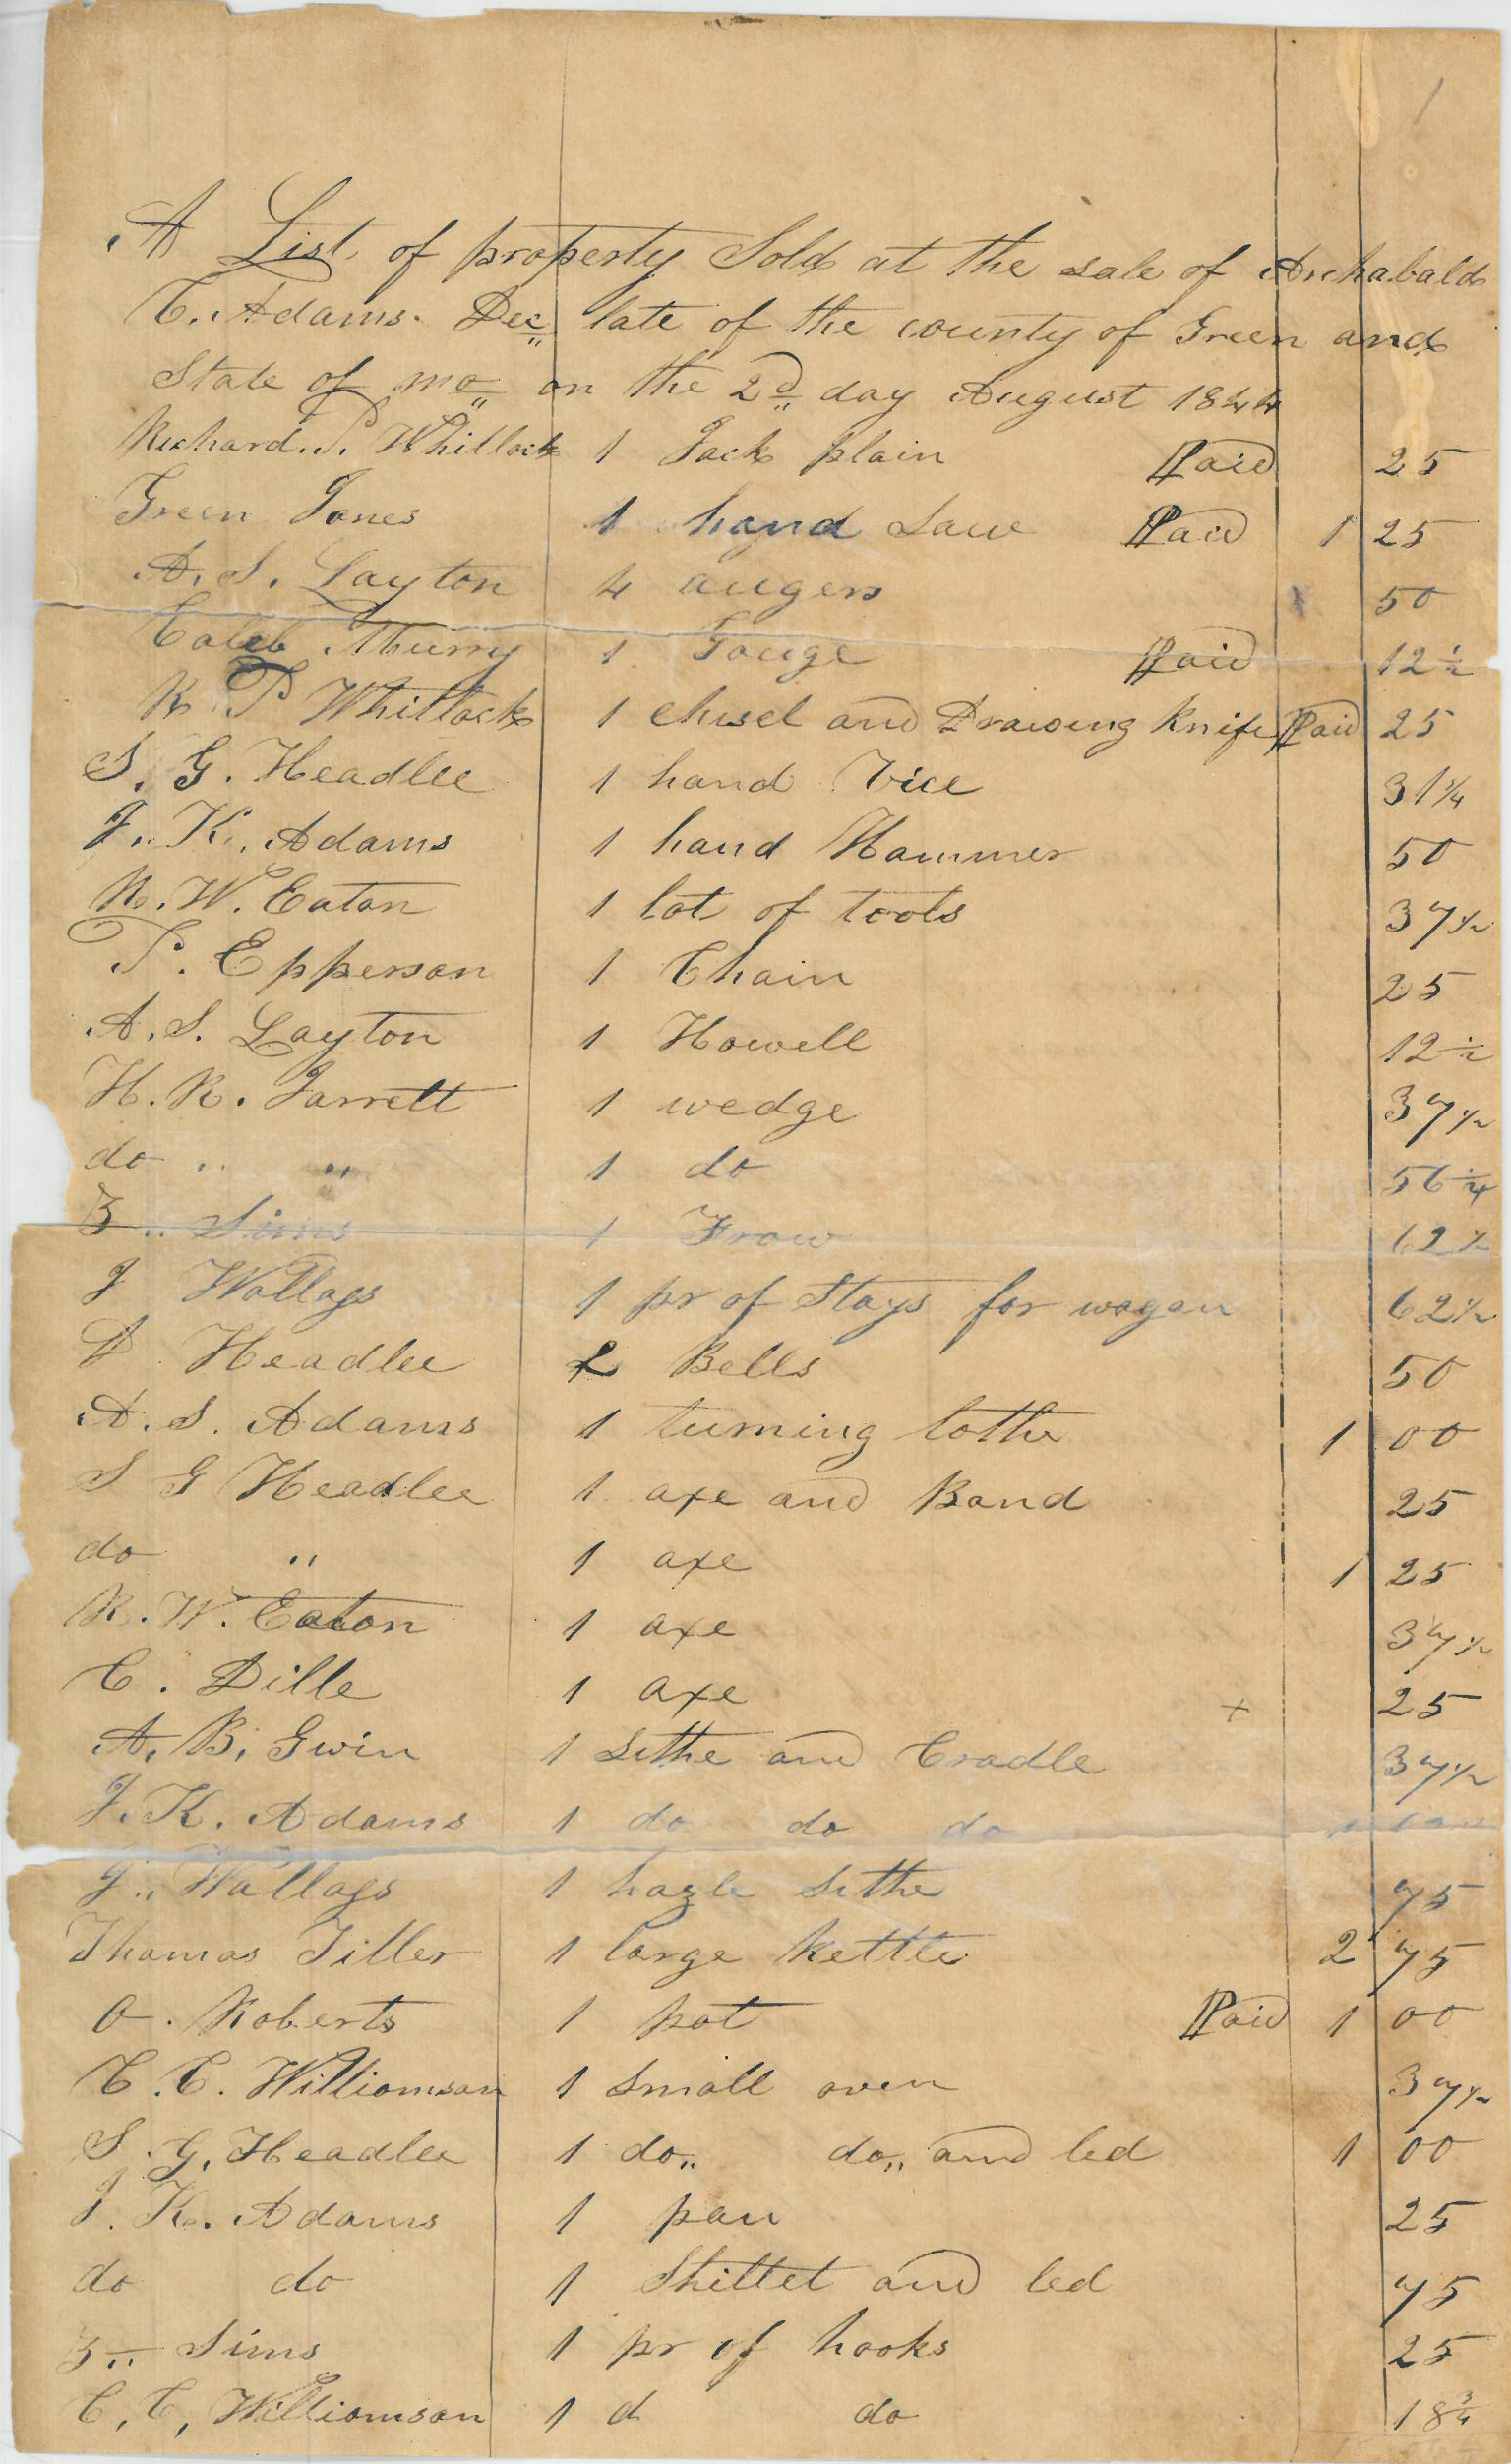 1
A List of property Sold at the sale of Archabald
C. Adams. Dec late of the county of Green and
State of mo on the 2d day August 1844
Richard. P. Whitlock 1 Jack plain Paid 25
Green Jones 1 hand Saw Paid 1 25
A. S. Layton 4 augers 50
Caleb Murry 1 Gouge Paid 12 1/2
R P Whitlock 1 chisel and Drawing Knife Paid 25
S. G. Headlee 1 hand Vice 31 1/4
J.. K.. Adams 1 hand Hammer 50
R. W. Eaton 1 lot of tools 37 1/2
P. Epperson 1 Chain 25
A. S. Layton 1 Howell 12 1/2
H. R. Jarrett 1 wedge 37 1/2
do .. " 1 do 56 1/4
Z .. Sims 1 Frow 62 1/2
J Wallags 1 pr of Stays for wagan 62 1/2
D Headlee 2 Bells 50
A. S. Adams 1 turning lathe 1 00
S G Headlee 1 axe and Band 25
do " 1 axe 1 25
R. W. Eaton 1 axe 37 1/2
C. Dille 1 axe + 25
A. B. Gwin 1 Sithe and Cradle 37 1/2
J. K. Adams 1 do do do
J.. Wallags 1 hazle Sithe 75
Thomas Tiller 1 large Kettle 2 75
O. Roberts 1 pot Paid 1 00
C. C. Williamson 1 Small oven 37 1/2
S. G. Headlee 1 do.. do.. and led 1 00
J. K. Adams 1 pan 25
do do 1 Skillet and led 75
Z .. Sims 1 pr of hooks 25
C, C, Williamson 1 d do 18 3/4